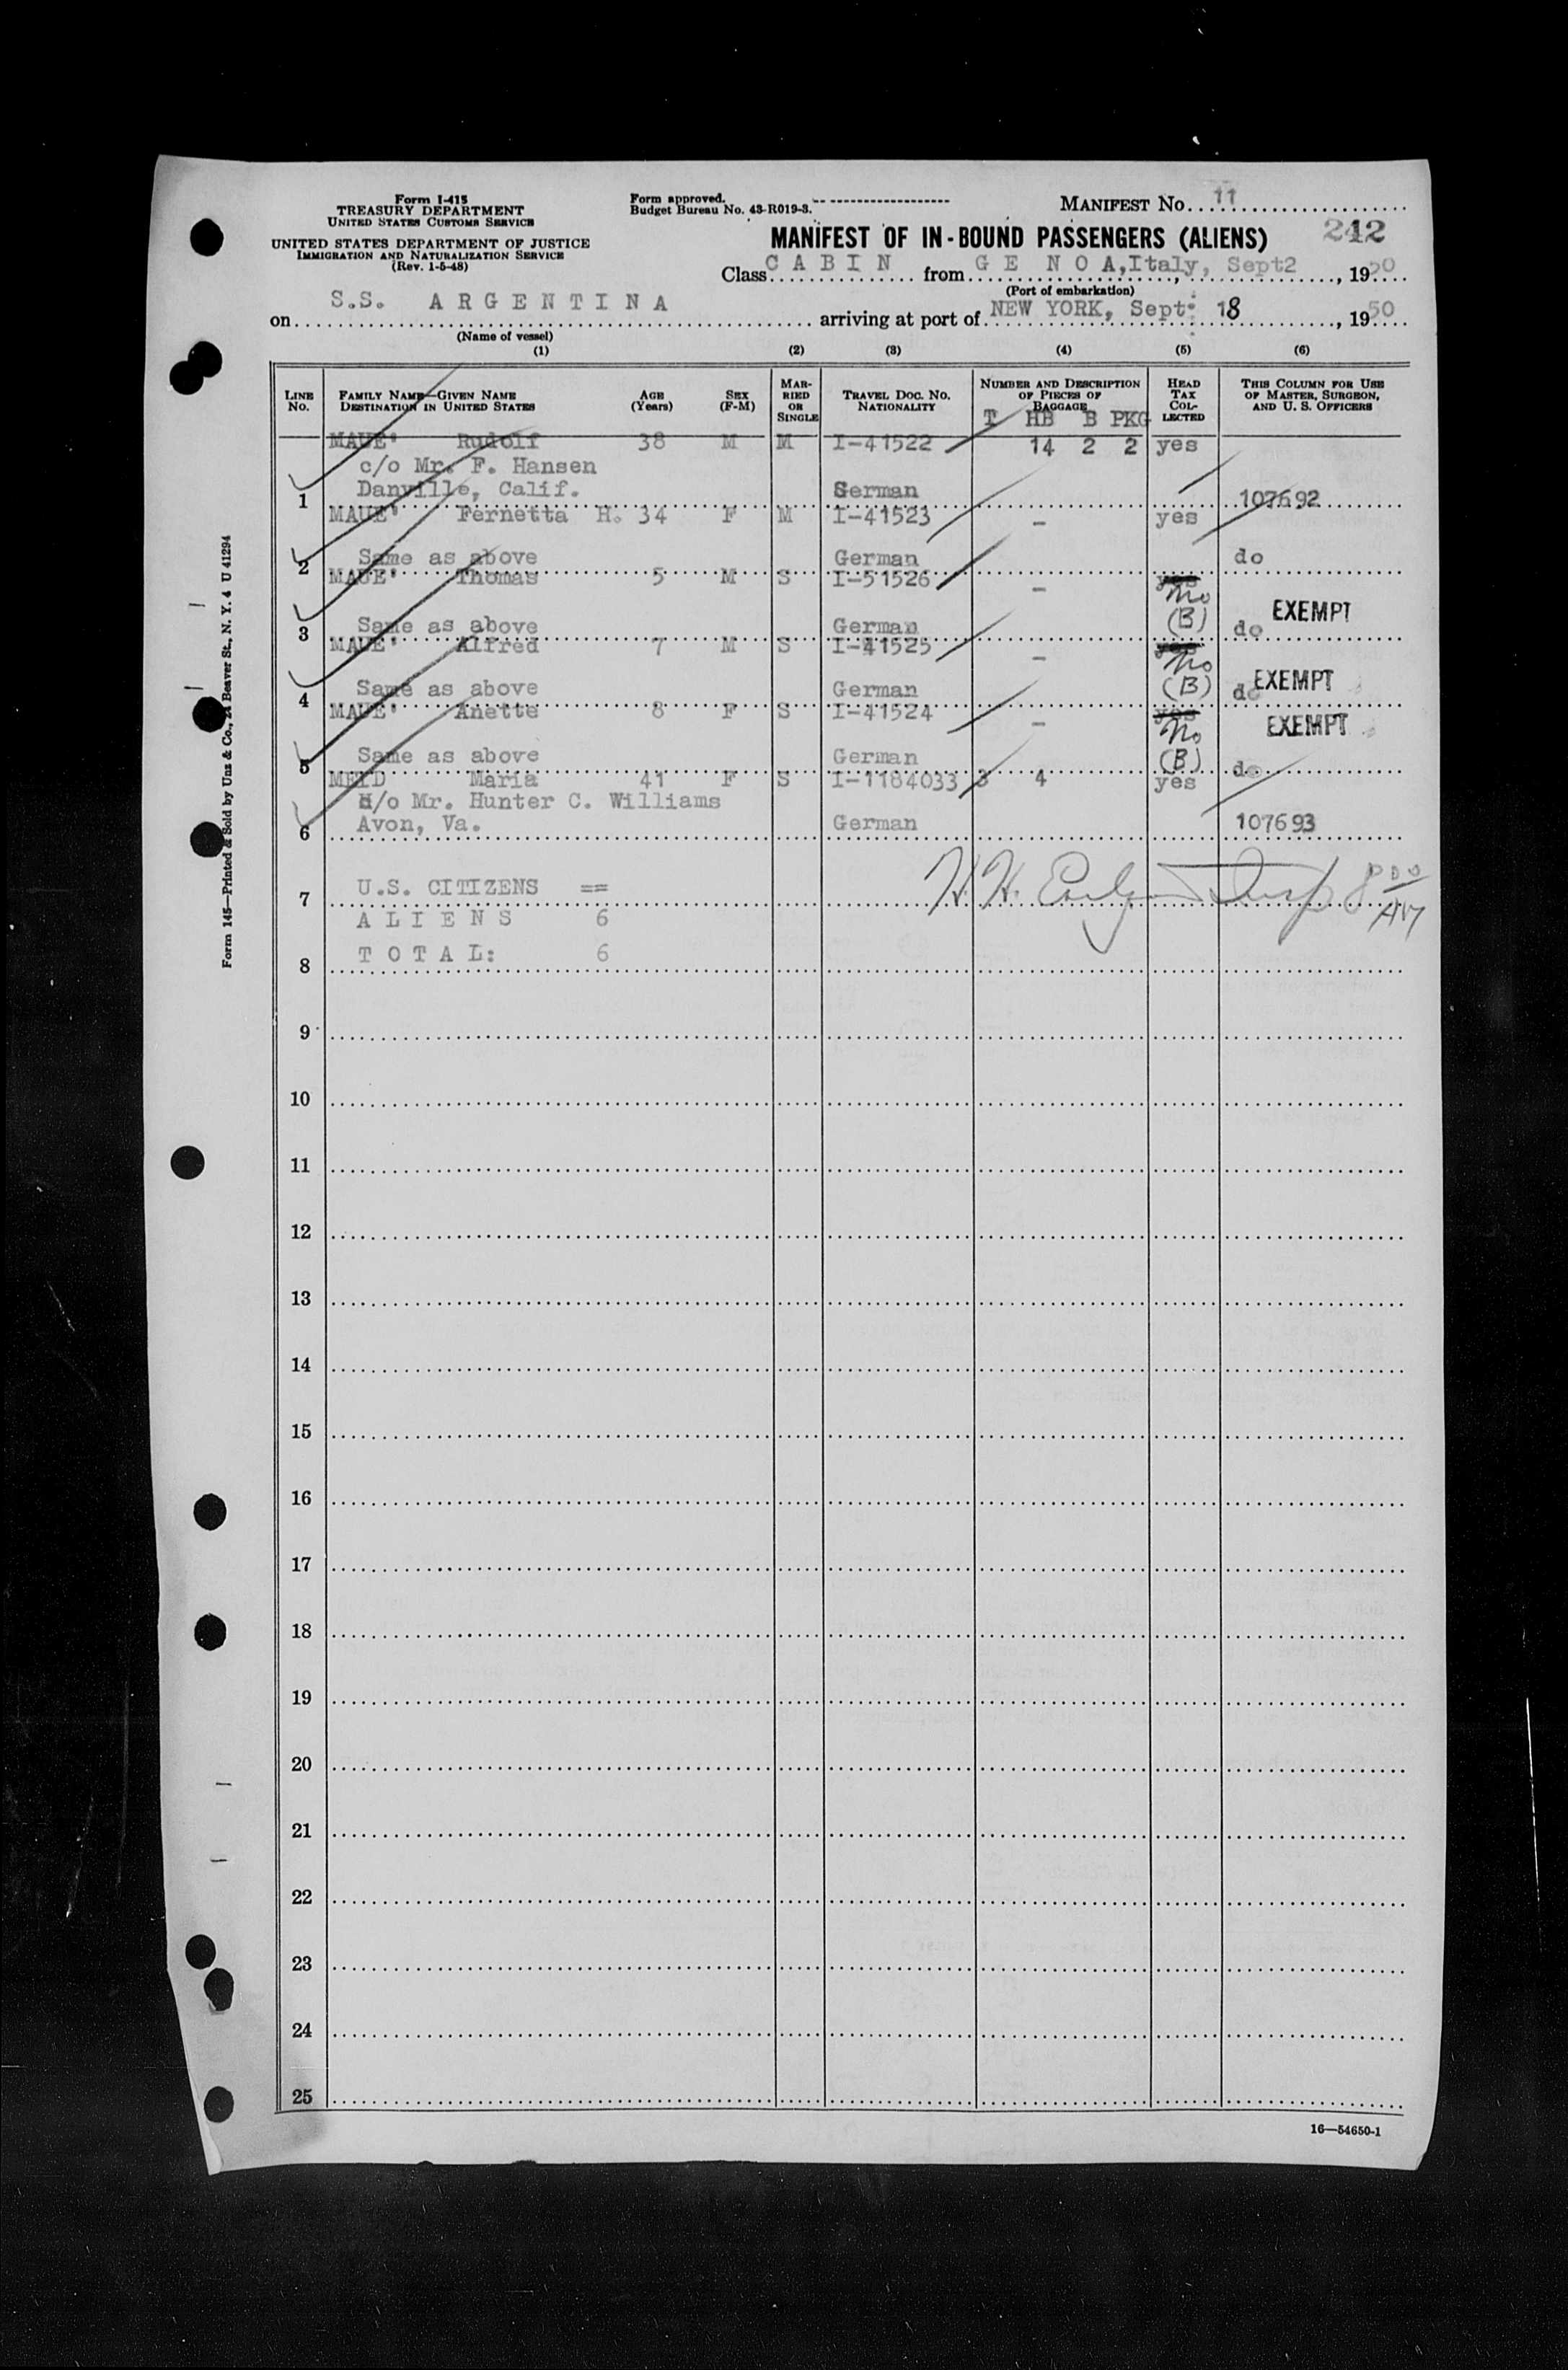 Form I-415
TREASURY DEPARTMENT
UNITED STATES CUSTOMS SERVICE
UNITED STATES DEPARTMENT OF JUSTICE
IMMIGRATION AND NATURALIZATION SERVICE
(Rev. 1-5-48)
Form approved.
Budget Bureau No. 43-R019-3.
MANIFEST No. 11
MANIFEST OF IN-BOUND PASSENGERS (ALIENS) 242
Class CABIN from GENOA, Italy, Sept 2, 1950
(Port of embarkation)
on S.S. ARGENTINA arriving at port of NEW YORK, Sept: 18, 1950
(Name of vessel)
(1) (2) (3) (4) (5) (6)
LINE No. FAMILY NAME—GIVEN NAME DESTINATION IN UNITED STATES AGE (Years) SEX (F-M) MARRIED OR SINGLE TRAVEL DOC. NO. NATIONALITY NUMBER AND DESCRIPTION OF PIECES OF BAGGAGE HEAD TAX COLLECTED THIS COLUMN FOR USE OF MASTER, SURGEON, AND U. S. OFFICERS
T HB B PKG
MAUE' Rudolf 38 M M I-41522 14 2 2 yes
c/o Mr. F. Hansen
1 Danville, Calif. German 107692
MAUE' Fernetta H. 34 F M I-41523 - yes
2 Same as above German do
MAUE' Thomas 5 M S I-51526 - yes No
3 Same as above German (B) do EXEMPT
MAUE' Alfred 7 M S I-41525 - yes No
4 Same as above German (B) do EXEMPT
MAUE' Anette 8 F S I-41524 - yes No EXEMPT
5 Same as above German (B) do
MEID Maria 41 F S I-1184033 3 4 yes
c/o Mr. Hunter C. Williams
6 Avon, Va. German 107693
7 U.S. CITIZENS ==
H. H. Insp
ALIENS 6
8 TOTAL: 6
9
10
11
12
13
14
15
16
17
18
19
20
21
22
23
24
25
16—54650-1
Form 145—Printed & Sold by Unz & Co., 24 Beaver St., N. Y. 4 U 41294